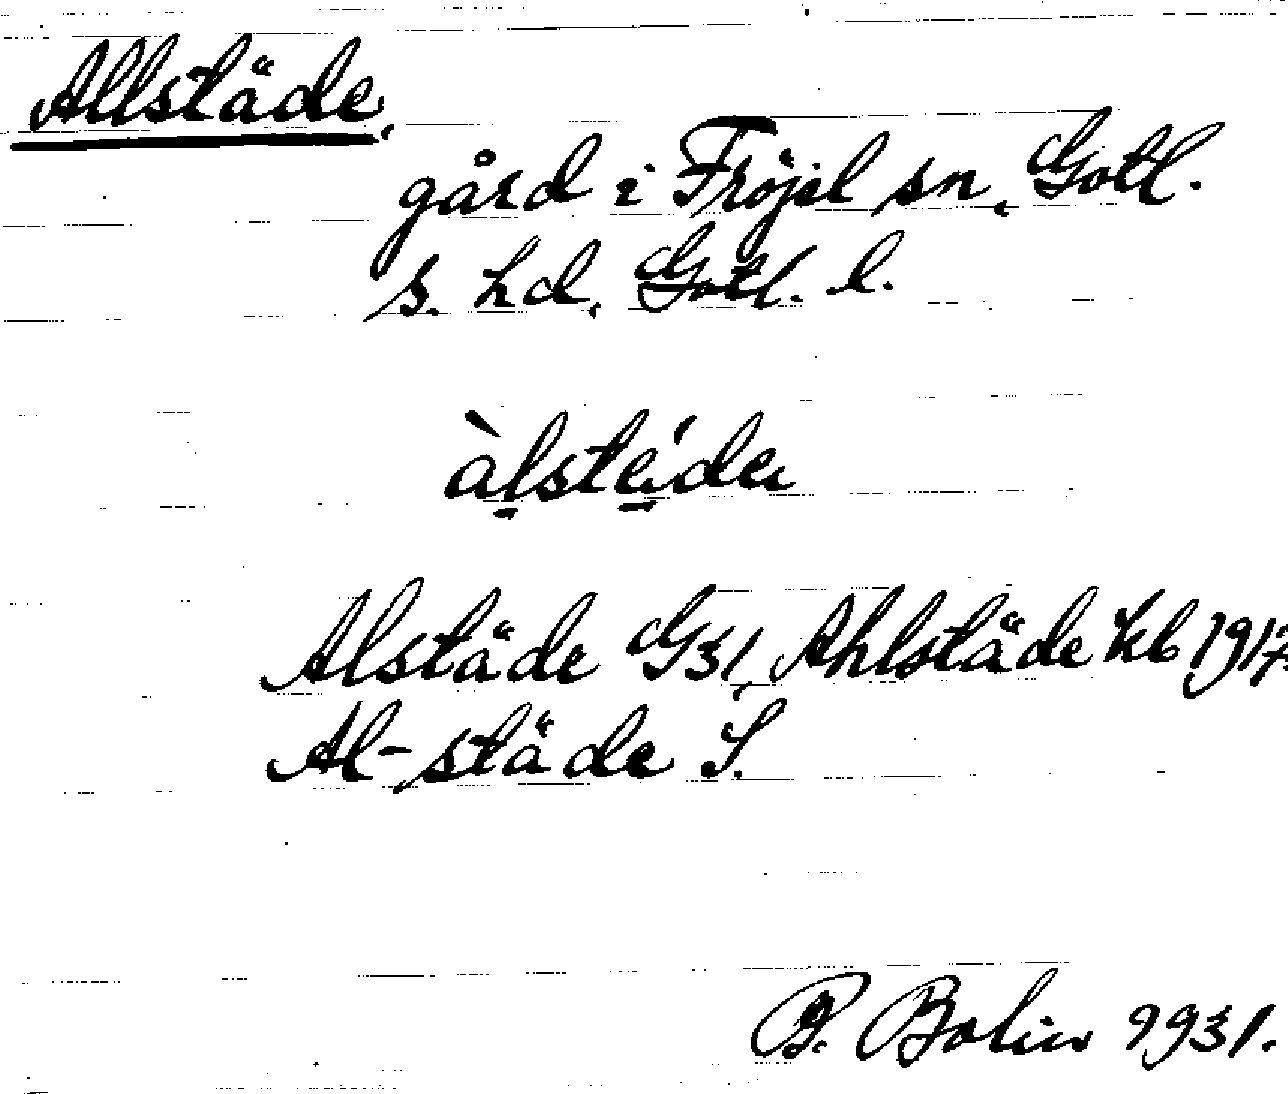 Allstäde,
gård i Fröjel sn, Gotl.
s. hd, Gotl. l.
àlstéde
Alstäde G31, Ahlstäde kb 1917
Al-städe S.
G. Bolin 1931.